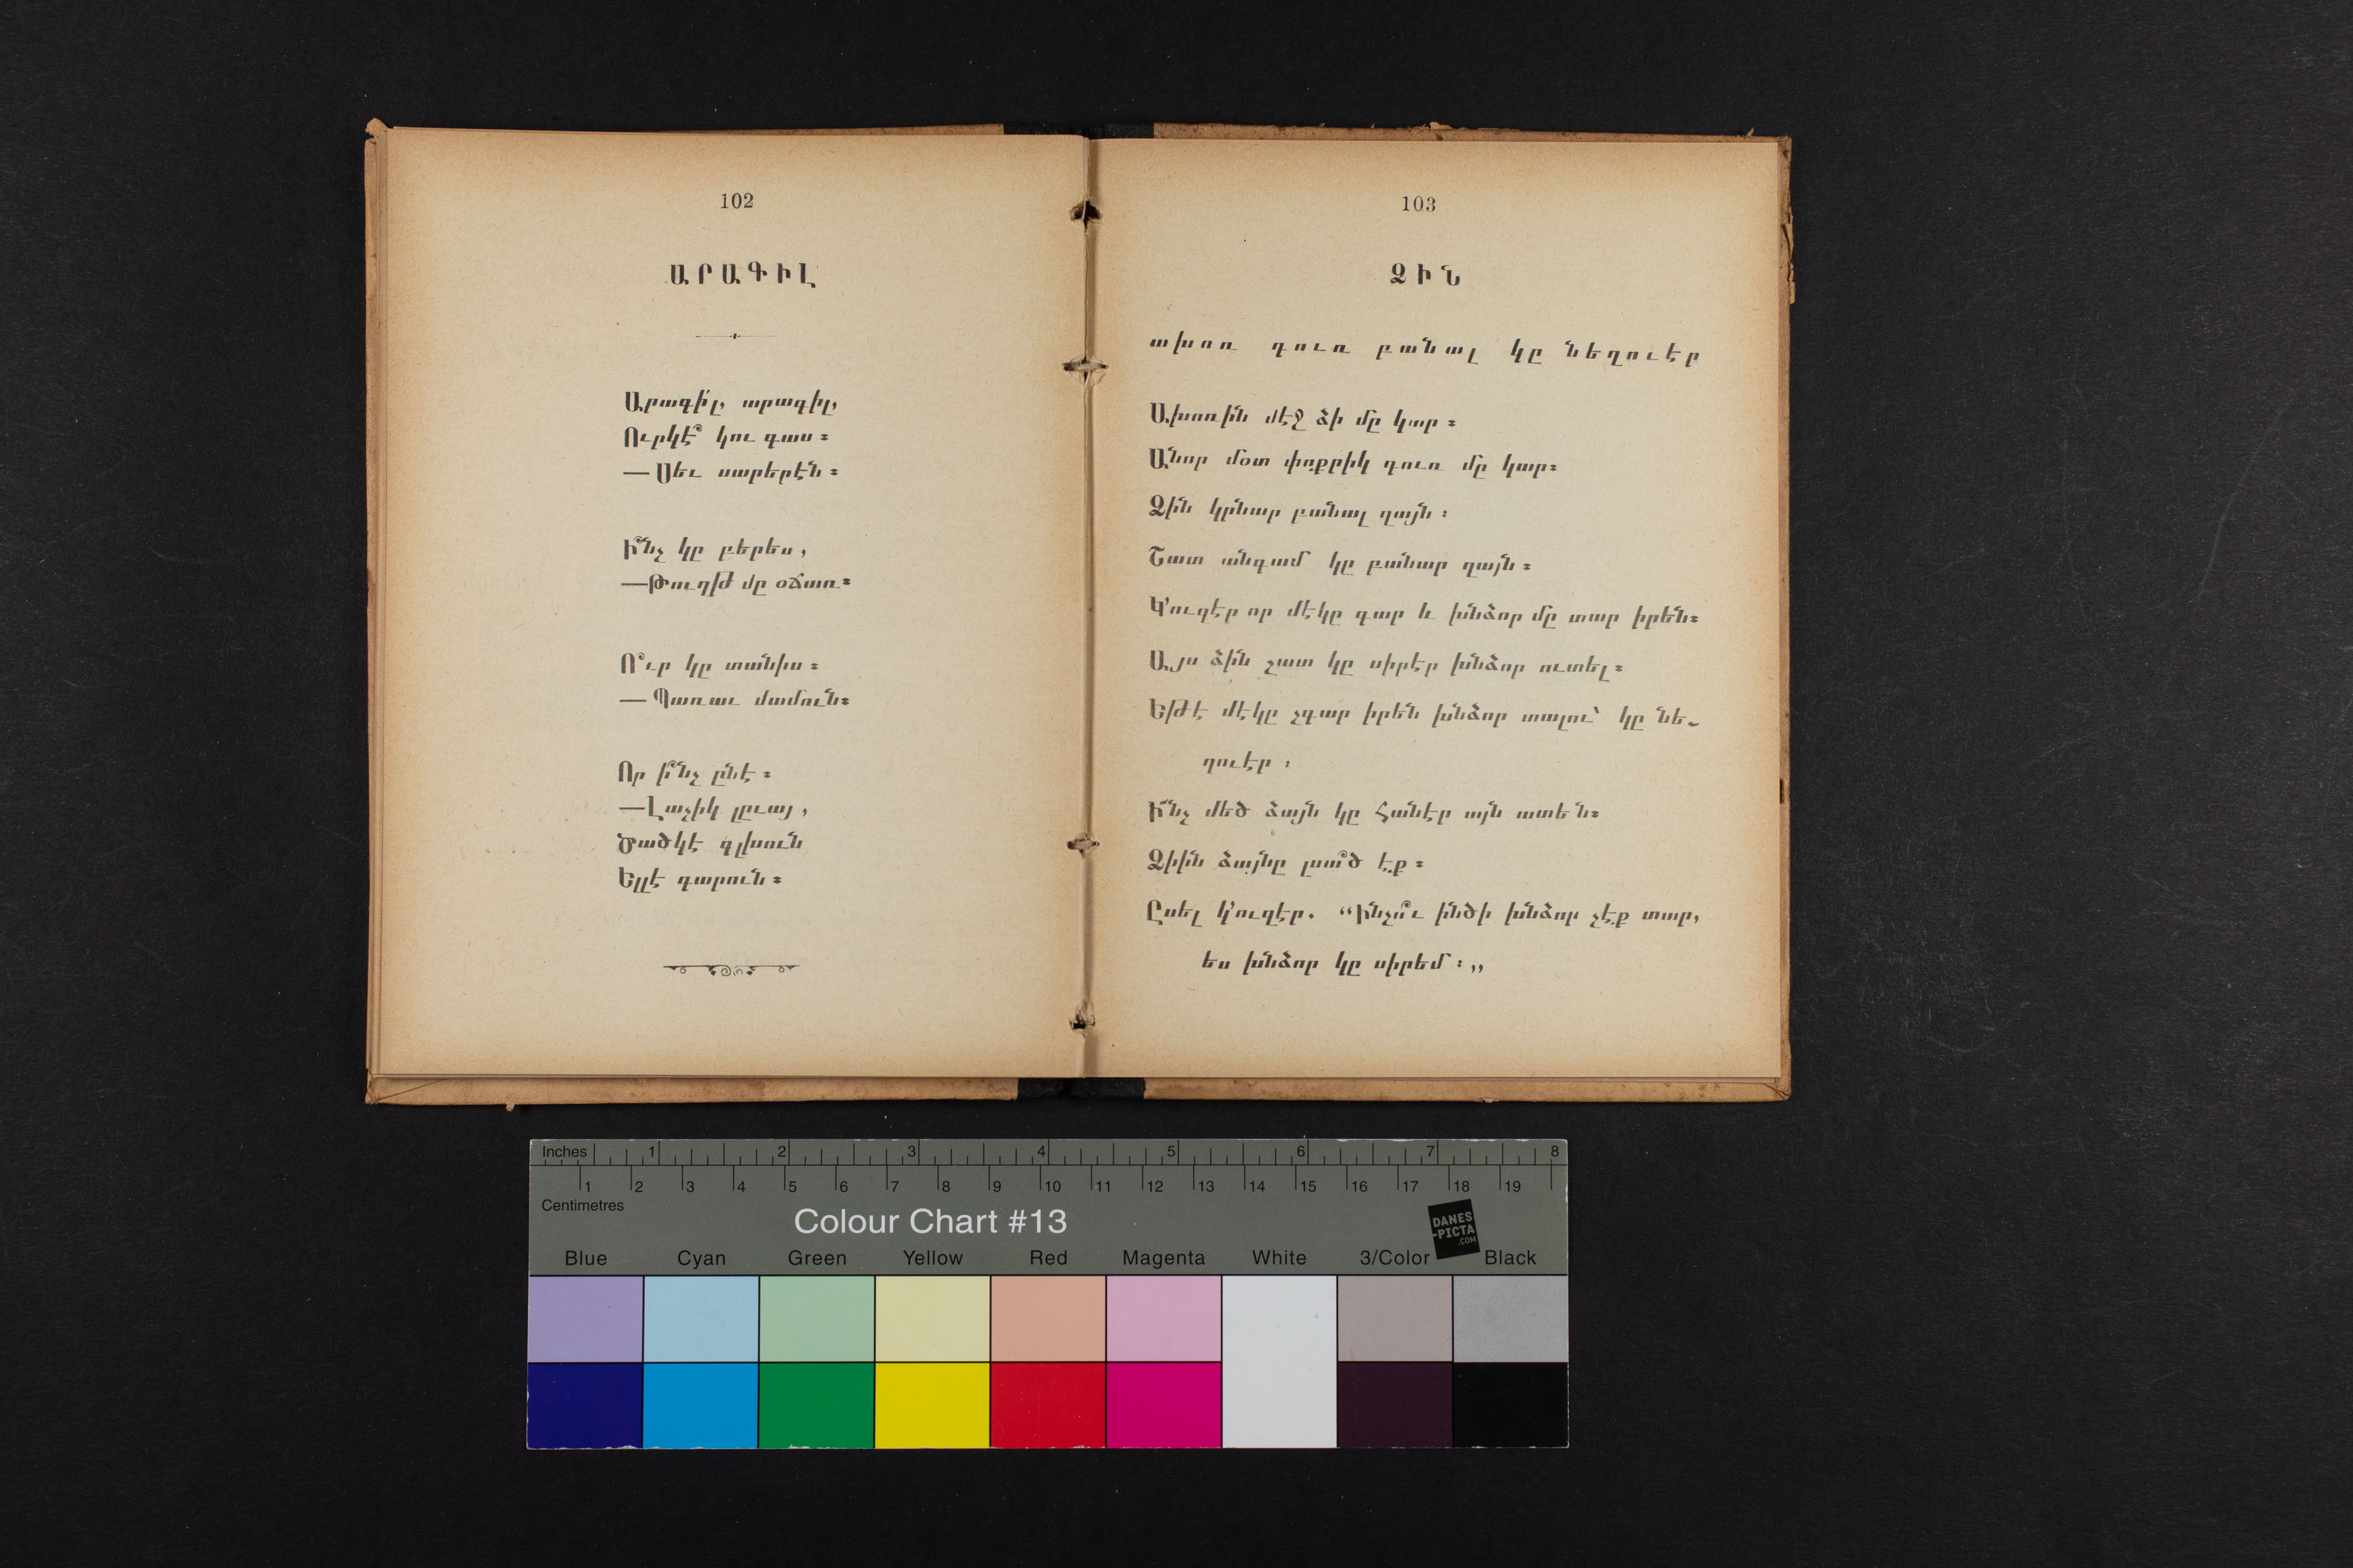 102
ԱՐԱԳԻԼ
Արագի՛լ, արագիլ,
Ուրկէ՞ կու գաս։
— Սեւ սարերէն։
Ի՞նչ կը բերես,
—Թուղթ մը օճառ։
Ո՞ւր կը տանիս։
— Պառաւ մամուն։
Որ ի՞նչ ընէ։
—Լաչիկ լըւայ,
Ծածկէ գլխուն
Ելլէ գարուն։
103
ՁԻՆ
ախոռ դուռ բանալ կը նեղուէր
Ախոռին մէջ ձի մը կար։
Անոր մօտ փոքրիկ դուռ մը կար։
Ձին կրնար բանալ ղայն։
Շատ անգամ կը բանար ղայն։
Կ՚ուզէր որ մէկը գար և խնձոր մը տար իրեն։
Այս ձին շատ կը սիրէր խնձոր ուտել։
Եթէ մէկը չգար իրեն խնձոր տալու՝ կը նե-
ղուէր։
Ի՜նչ մեծ ձայն կը հանէր այն ատեն։
Ձիին ձայնը լսա՞ծ էք։
Ըսել կ՚ուզէր. “Ինչո՞ւ ինծի խնձոր չէք տար,
ես խնձոր կը սիրեմ։„
Inches 1 2 3 4 5 6 7 8
1 2 3 4 5 6 7 8 9 10 11 12 13 14 15 16 17 18 19
Centimetres
Colour Chart #13
DANES
-PICTA
.COM
Blue Cyan Green Yellow Red Magenta White 3/Color Black